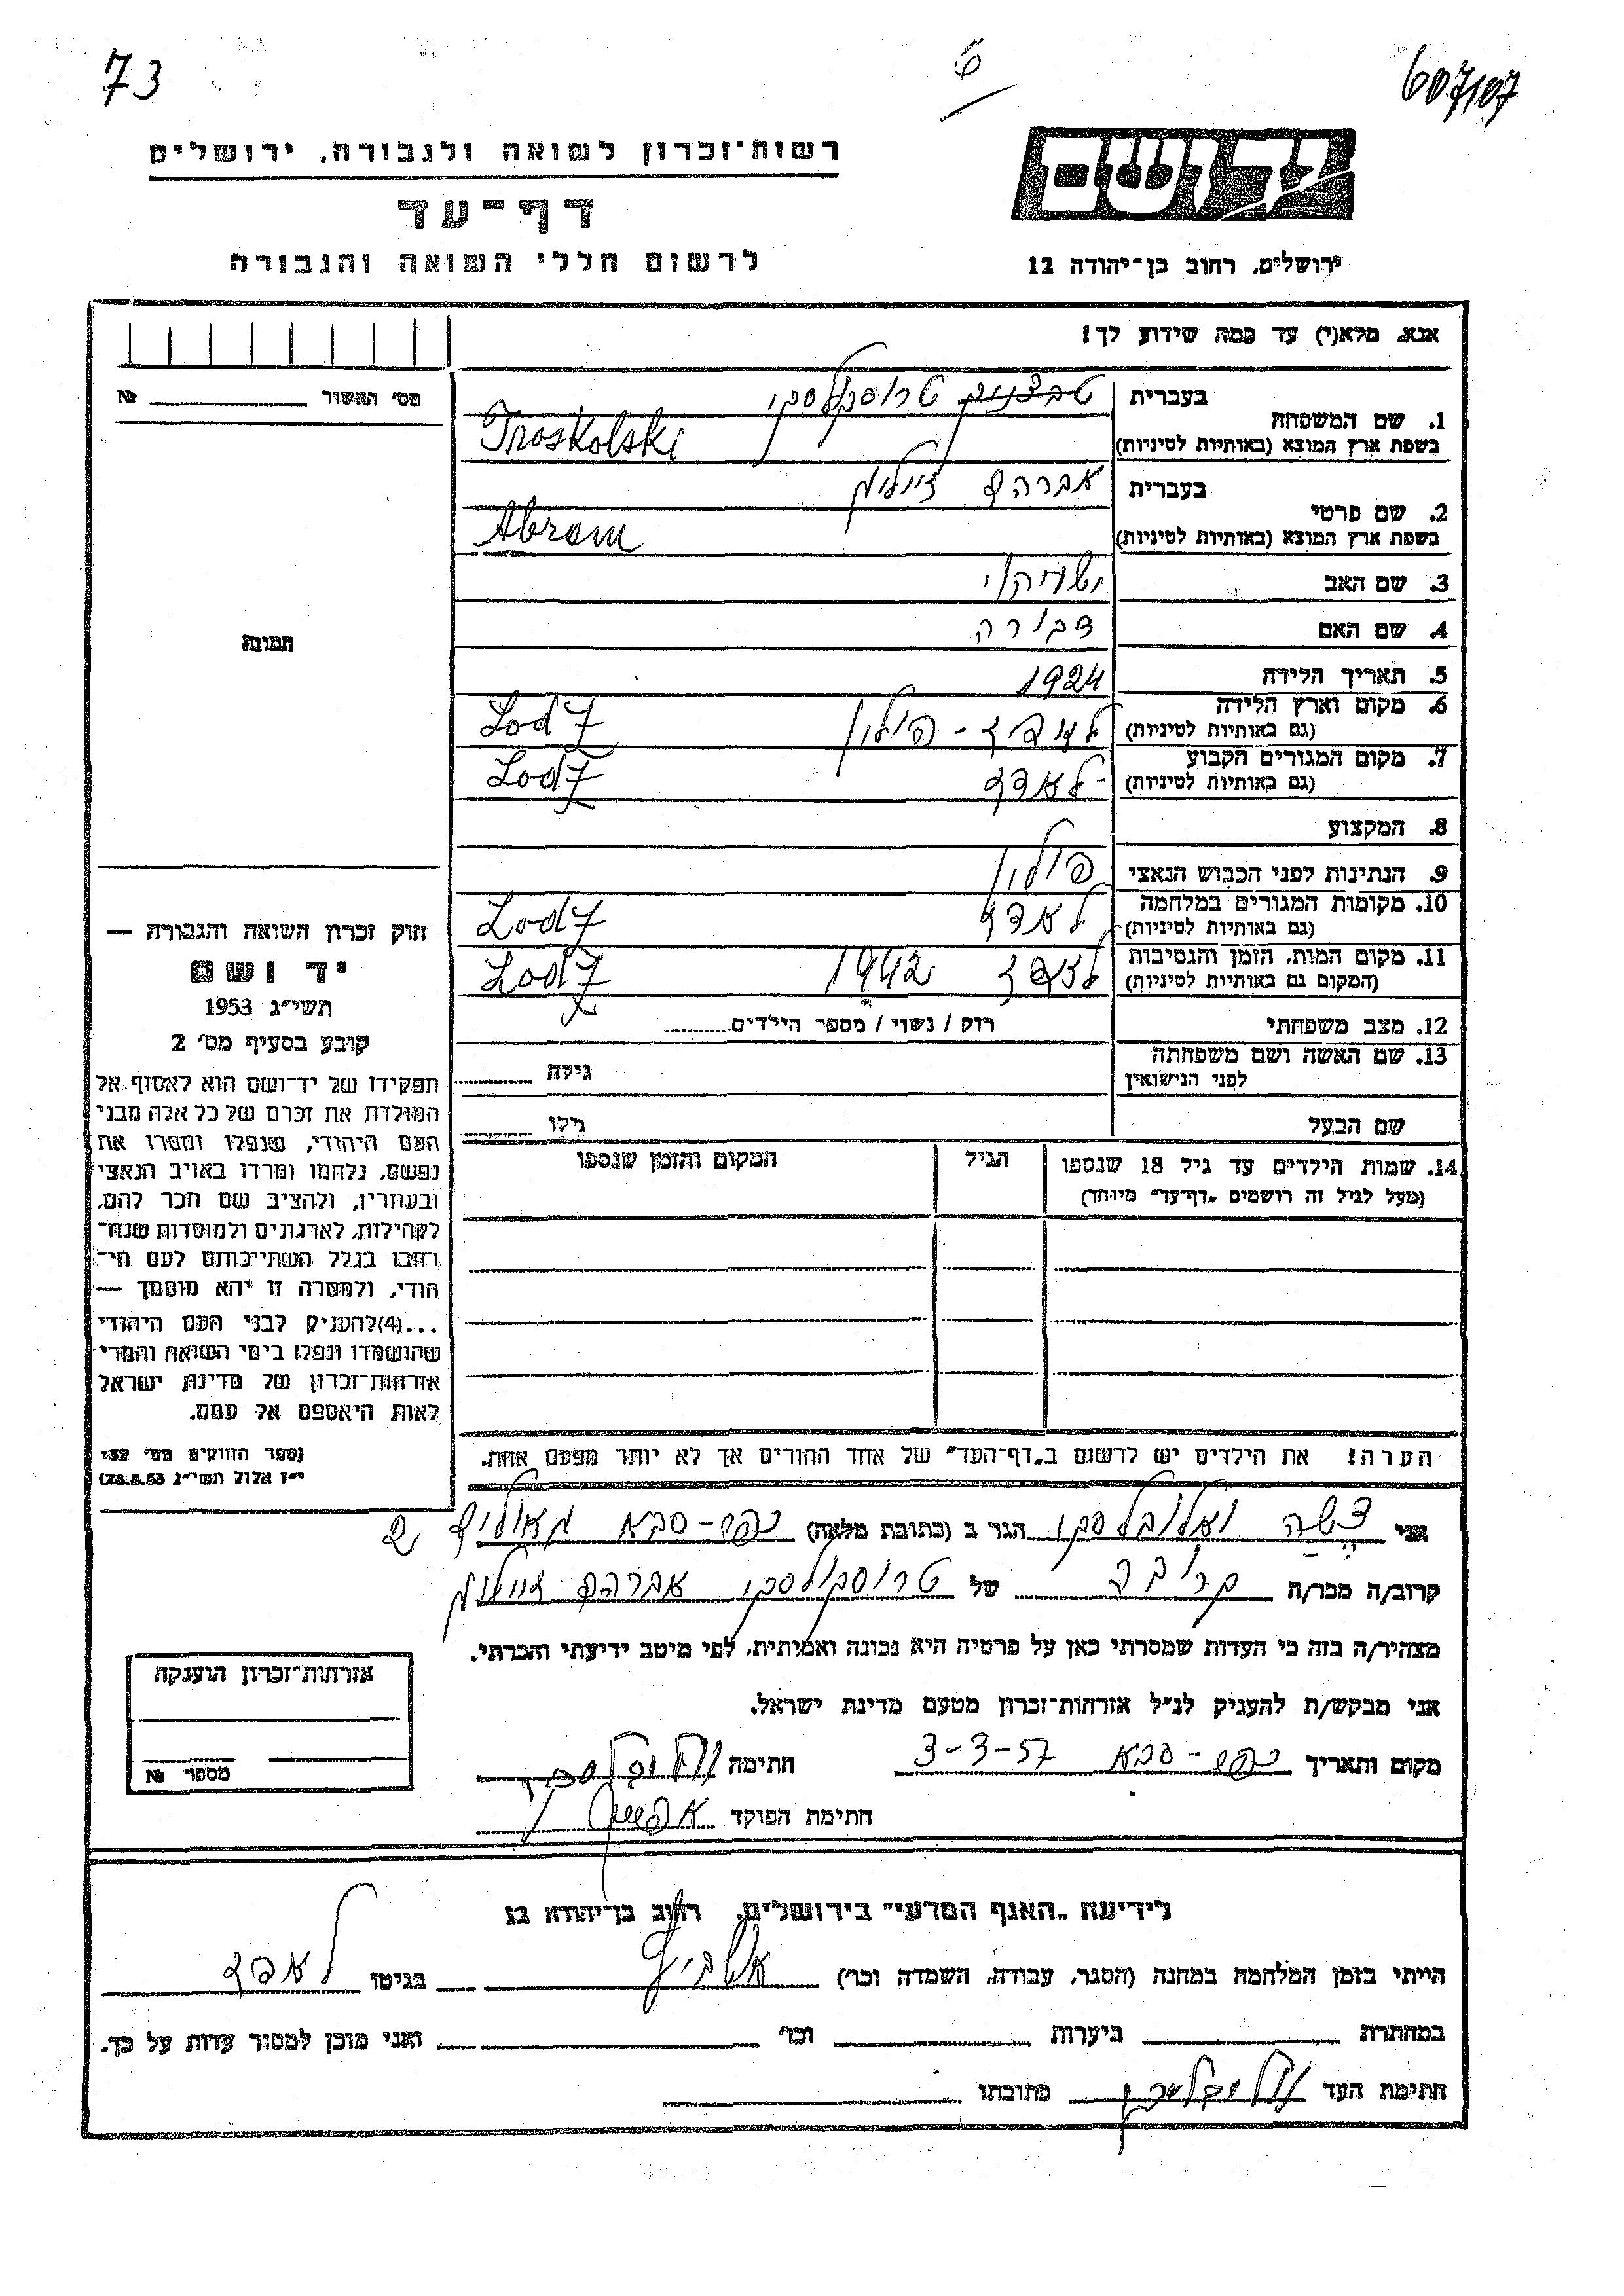 73
6
607/107
רשות־זכרון לשואה ולגבורה, ירושלים
יד ושם
דף־עד
לרשום חללי השואה והגבורה
ירושלים, רחוב בן־יהודה 12
אנא, מלא(י) עד כמה שידוע לך!
מס׳ האשור №
1. שם המשפחה
בעברית טרוסקולסקי
בשפת ארץ המוצא (באותיות לטיניות) Troskolski
2. שם פרטי
בעברית אברהם זייליג
בשפת ארץ המוצא (באותיות לטיניות) Abram
3. שם האב
4. שם האם דבורה
5. תאריך הלידה 1924
6. מקום וארץ הלידה
(גם באותיות לטיניות) פולין Lodz
7. מקום המגורים הקבוע
(גם באותיות לטיניות) לאדז Lodz
8. המקצוע
9. הנתינות לפני הכבוש הנאצי פולין
10. מקומות המגורים במלחמה
(גם באותיות לטיניות) לאדז Lodz
11. מקום המות, הזמן והנסיבות
(המקום גם באותיות לטיניות) 1942 Lodz
12. מצב משפחתי רווק / נשוי / מספר הילדים
13. שם האשה ושם משפחתה
לפני הנישואין גילה
שם הבעל גילו
14. שמות הילדים עד גיל 18 שנספו הגיל המקום והזמן שנספו
(מעל לגיל זה רושמים „דף־עד״ מיוחד)
הערה! את הילדים יש לרשום ב„דף־העד״ של אחד ההורים אך לא יותר מפעם אחת.
תמונה
חוק זכרון השואה והגבורה —
יד ושם
תשי״ג 1953
קובע בסעיף מס׳ 2
תפקידו של יד־ושם הוא לאסוף אל
המולדת את זכרם של כל אלה מבני
העם היהודי, שנפלו ומסרו את
נפשם, נלחמו ומרדו באויב הנאצי
ובעוזריו, ולהציב שם וזכר להם,
לקהילות, לארגונים ולמוסדות שנח־
רבו בגלל השתייכותם לעם הי־
הודי, ולמטרה זו יהא מוסמך —
...(4)להעניק לבני העם היהודי
שהושמדו ונפלו בימי השואה והמרי
אזרחות־זכרון של מדינת ישראל
לאות היאספם אל עמם.
(ספר החוקים מס׳ 132
י״ז אלול תשי״ג 28.8.53)
אני הגר ב (כתובת מלאה) כפר־סבא
קרוב/ה מכר/ה קרובה של טרוסקולסקי אברהם זייליג
מצהיר/ה בזה כי העדות שמסרתי כאן על פרטיה היא נכונה ואמיתית, לפי מיטב ידיעתי והכרתי.
אני מבקש/ת להעניק לנ״ל אזרחות־זכרון מטעם מדינת ישראל.
מקום ותאריך כפר־סבא 3-3-57 חתימה
חתימת הפוקד
אזרחות־זכרון הוענקה
מספר №
לידיעת „האגף המדעי״ בירושלים, רחוב בן־יהודה 12
הייתי בזמן המלחמה במחנה (הסגר, עבודה, השמדה וכו׳) אושביץ בגיטו לאדז
במחתרת ביערות וכו׳ ואני מוכן למסור עדות על כך.
חתימת העד כתובתו